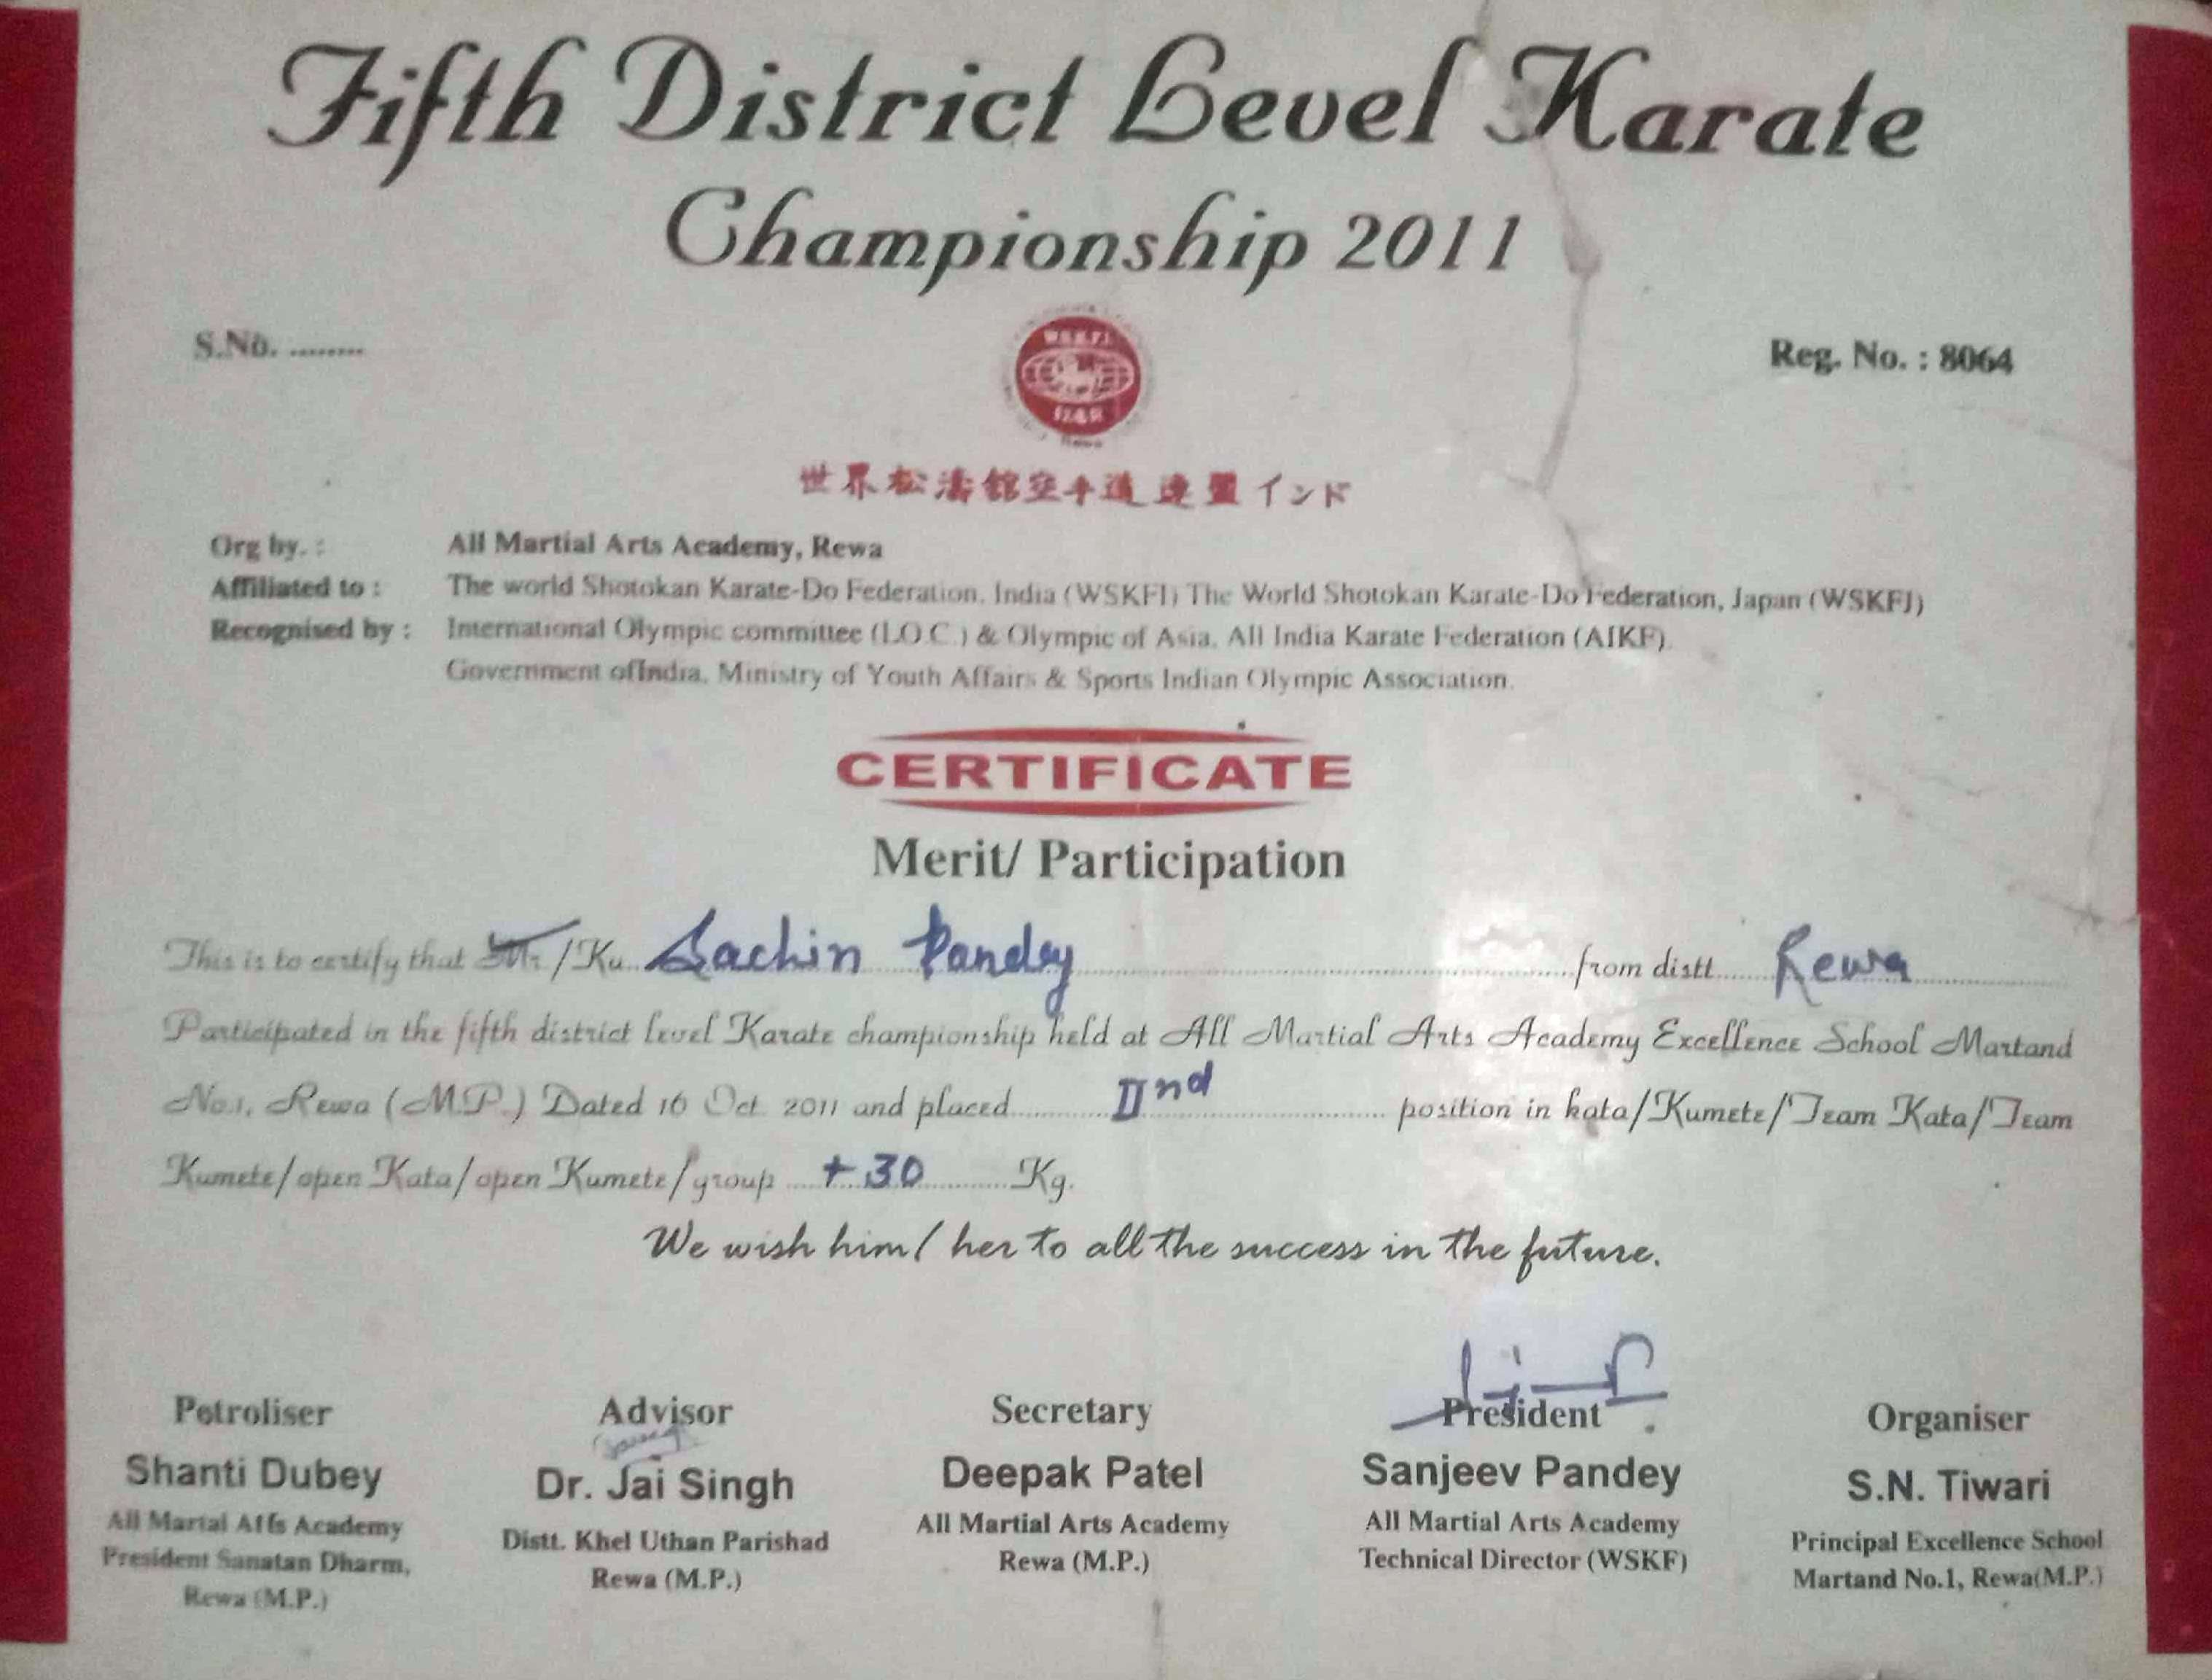 Fifth District Level Karate
Championship 2011
S.No. ........
Reg. No. : 8064
WSKFI
世界松濤館空手道連盟インド
Org by. : All Martial Arts Academy, Rewa
Affiliated to : The world Shotokan Karate-Do Federation, India (WSKFI) The World Shotokan Karate-Do Federation, Japan (WSKFJ)
Recognised by : International Olympic committee (I.O.C.) & Olympic of Asia, All India Karate Federation (AIKF),
Government ofIndia, Ministry of Youth Affairs & Sports Indian Olympic Association.
CERTIFICATE
Merit/ Participation
This is to certify that Mr./Ku. Sachin Pandey from distt. Rewa
Participated in the fifth district level Karate championship held at All Martial Arts Academy Excellence School Martand
No.1, Rewa (M.P.) Dated 16 Oct. 2011 and placed IInd position in kata/Kumete/Team Kata/Team
Kumete/open Kata/open Kumete/group + 30 Kg.
We wish him/ her to all the success in the future.
Petroliser Advisor Secretary President Organiser
Shanti Dubey Dr. Jai Singh Deepak Patel Sanjeev Pandey S.N. Tiwari
All Martial Arts Academy Distt. Khel Uthan Parishad All Martial Arts Academy All Martial Arts Academy Principal Excellence School
President Sanatan Dharm, Rewa (M.P.) Rewa (M.P.) Technical Director (WSKF) Martand No.1, Rewa(M.P.)
Rewa (M.P.)